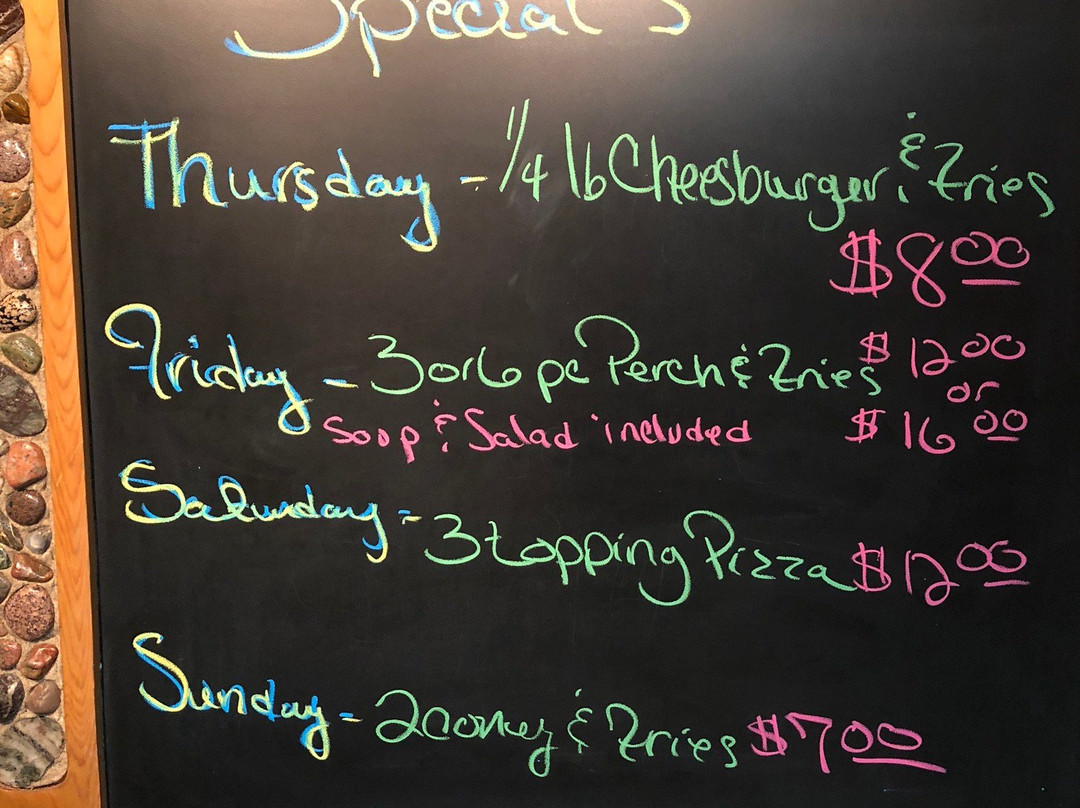 Special's
Thursday - 1/4 lb Cheesburger, & Fries
$8.00
Friday - 3 or 6 pc Perch & Fries $12.00
or
Soup & Salad included $16.00
Saturday - 3 topping Pizza $12.00
Sunday - 2 coney & Fries $7.00